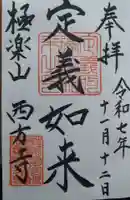 奉拝
令和七年
十一月十二日
定義如来
極楽山
西方寺